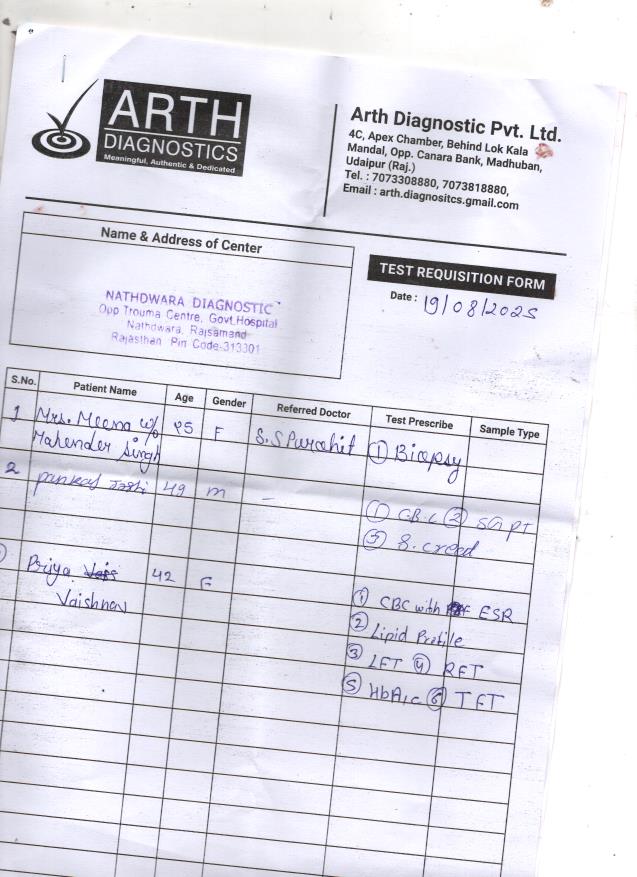 ARTH
DIAGNOSTICS
Meaningful, Authentic & Dedicated
Arth Diagnostic Pvt. Ltd.
4C, Apex Chamber, Behind Lok Kala
Mandal, Opp. Canara Bank, Madhuban,
Udaipur (Raj.)
Tel. : 7073308880, 7073818880,
Email : arth.diagnositcs.gmail.com
Name & Address of Center
NATHDWARA DIAGNOSTIC
Opp Trouma Centre, Govt.Hospital
Nathdwara, Rajsamand
Rajasthan Pin Code-313301
TEST REQUISITION FORM
Date : 19/08/2025
S.No. Patient Name Age Gender Referred Doctor Test Prescribe Sample Type
1 Mrs. Meena w/o 25 F S.S Purohit ① Biopsy
Mahender Singh
2 Pankaj Joshi 49 m -
① C.B.C ② SGPT
③ S. creat
Priya 42 F
Vaishnav
① CBC with ESR
② Lipid Profile
③ LFT ④ RFT
⑤ HbA1c ⑥ TFT